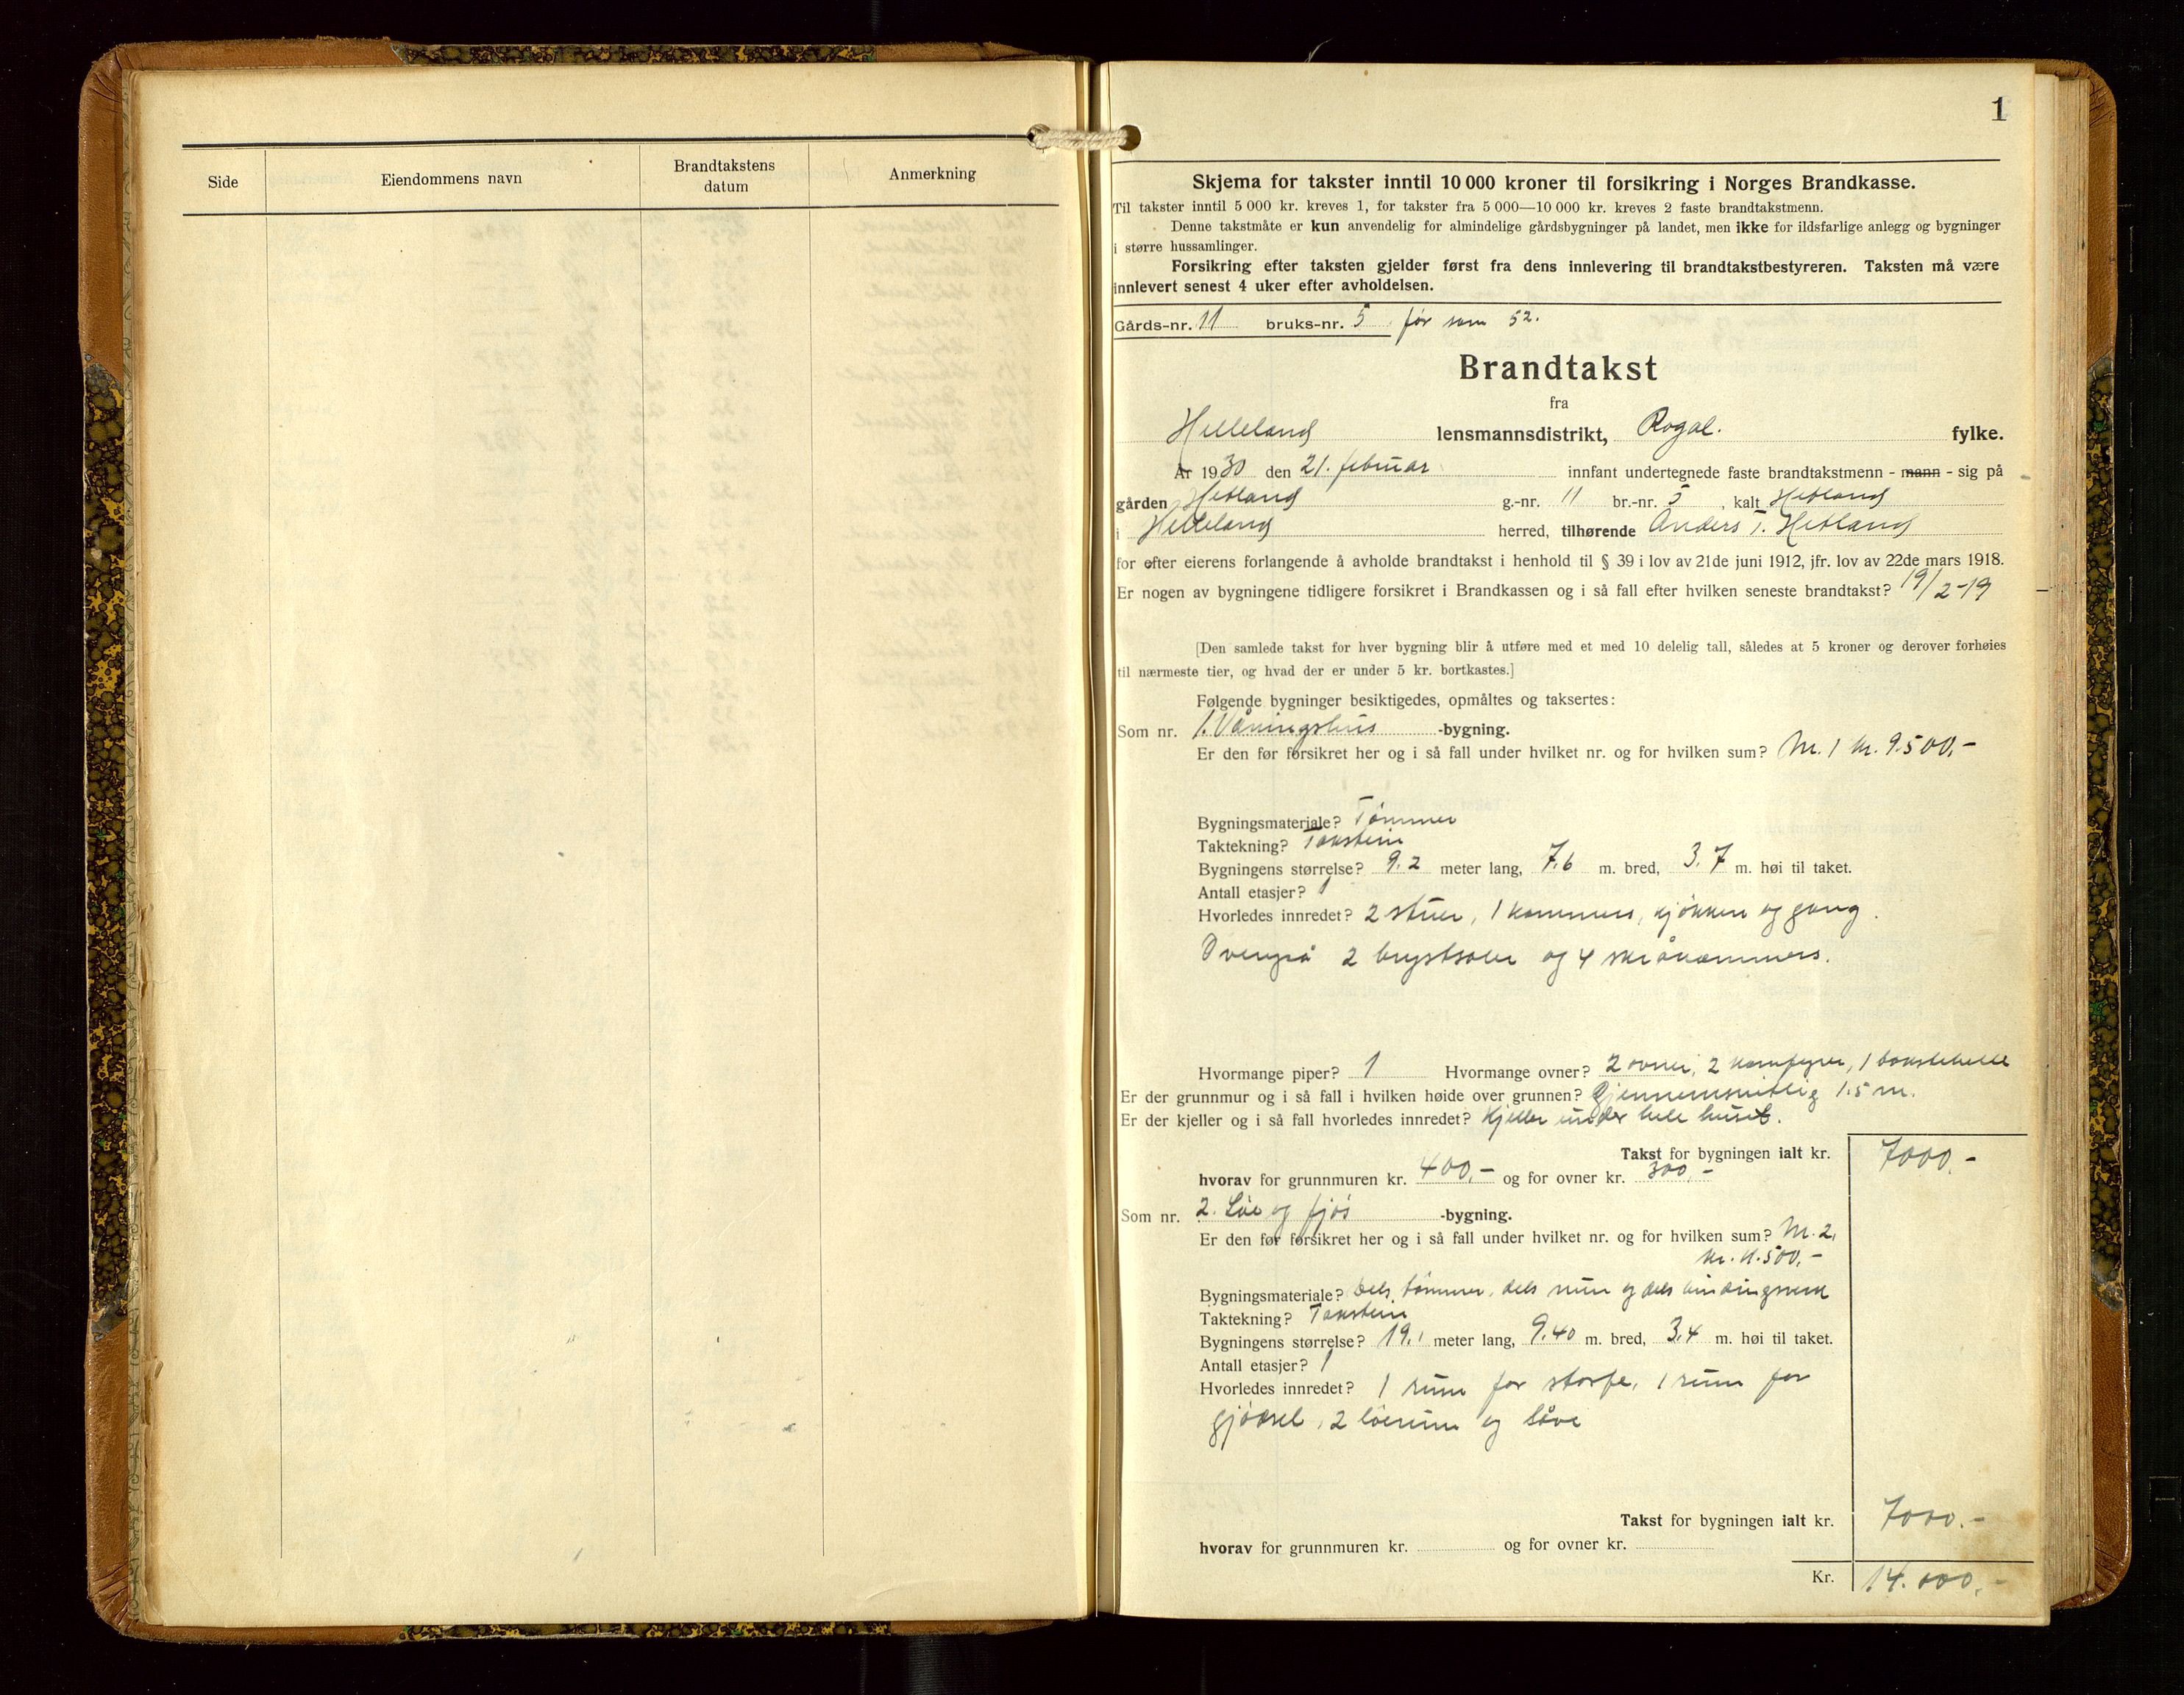 Side
Eiendommens navn
Brandtakstens
datum
Anmerkning
1
Skjema for takster inntil 10 000 kroner til forsikring i Norges Brandkasse.
Til takster inntil 5 000 kr. kreves 1, for takster fra 5 000—10 000 kr. kreves 2 faste brandtakstmenn.
Denne takstmåte er kun anvendelig for almindelige gårdsbygninger på landet, men ikke for ildsfarlige anlegg og bygninger
i større hussamlinger.
Forsikring efter taksten gjelder først fra dens innlevering til brandtakstbestyreren. Taksten må være
innlevert senest 4 uker efter avholdelsen.
Gårds-nr. 11 bruks-nr. 5 før som 52.
Brandtakst
fra
Helleland lensmannsdistrikt, Rogal. fylke.
År 1930 den 21. februar innfant undertegnede faste brandtakstmenn - mann - sig på
gården Hetland g.-nr. 11 br.-nr. 5, kalt Hetland
i Helleland herred, tilhørende Anders T. Hetland
for efter eierens forlangende å avholde brandtakst i henhold til § 39 i lov av 21de juni 1912, jfr. lov av 22de mars 1918.
Er nogen av bygningene tidligere forsikret i Brandkassen og i så fall efter hvilken seneste brandtakst? 19/2-19
[Den samlede takst for hver bygning blir å utføre med et med 10 delelig tall, således at 5 kroner og derover forhøies
til nærmeste tier, og hvad der er under 5 kr. bortkastes.]
Følgende bygninger besiktigedes, opmåltes og taksertes:
Som nr. 1. Våningshus -bygning.
Er den før forsikret her og i så fall under hvilket nr. og for hvilken sum? Nr. 1 kr. 9.500,-
Bygningsmateriale? Tømmer
Taktekning? Takstein
Bygningens størrelse? 9.2 meter lang, 7.6 m. bred, 3.7 m. høi til taket.
Antall etasjer? 1
Hvorledes innredet? 2 stuer, 1 kammers, kjøkken og gang.
Ovenpå 2 brystsaler og 4 skråkammers.
Hvormange piper? 1 Hvormange ovner? 2 ovner, 2 komfyrer, 1 bakstehelle
Er der grunnmur og i så fall i hvilken høide over grunnen? Gjennemsnitlig 1.5 m.
Er der kjeller og i så fall hvorledes innredet? Kjeller under hele huset.
Takst for bygningen ialt kr. 7000.-
hvorav for grunnmuren kr. 400,- og for ovner kr. 300,-
Som nr. 2. Løe og fjøs -bygning.
Er den før forsikret her og i så fall under hvilket nr. og for hvilken sum? Nr. 2,
kr. 4.500,-
Bygningsmateriale? Dels tømmer, dels mur og dels bindingsverk
Taktekning? Takstein
Bygningens størrelse? 19.1 meter lang, 9.40 m. bred, 3.4 m. høi til taket.
Antall etasjer? 1
Hvorledes innredet? 1 rum for storfe, 1 rum for
gjødsel, 2 løerum og låve
Takst for bygningen ialt kr. 7000.-
hvorav for grunnmuren kr. og for ovner kr.
Kr. 14.000,-